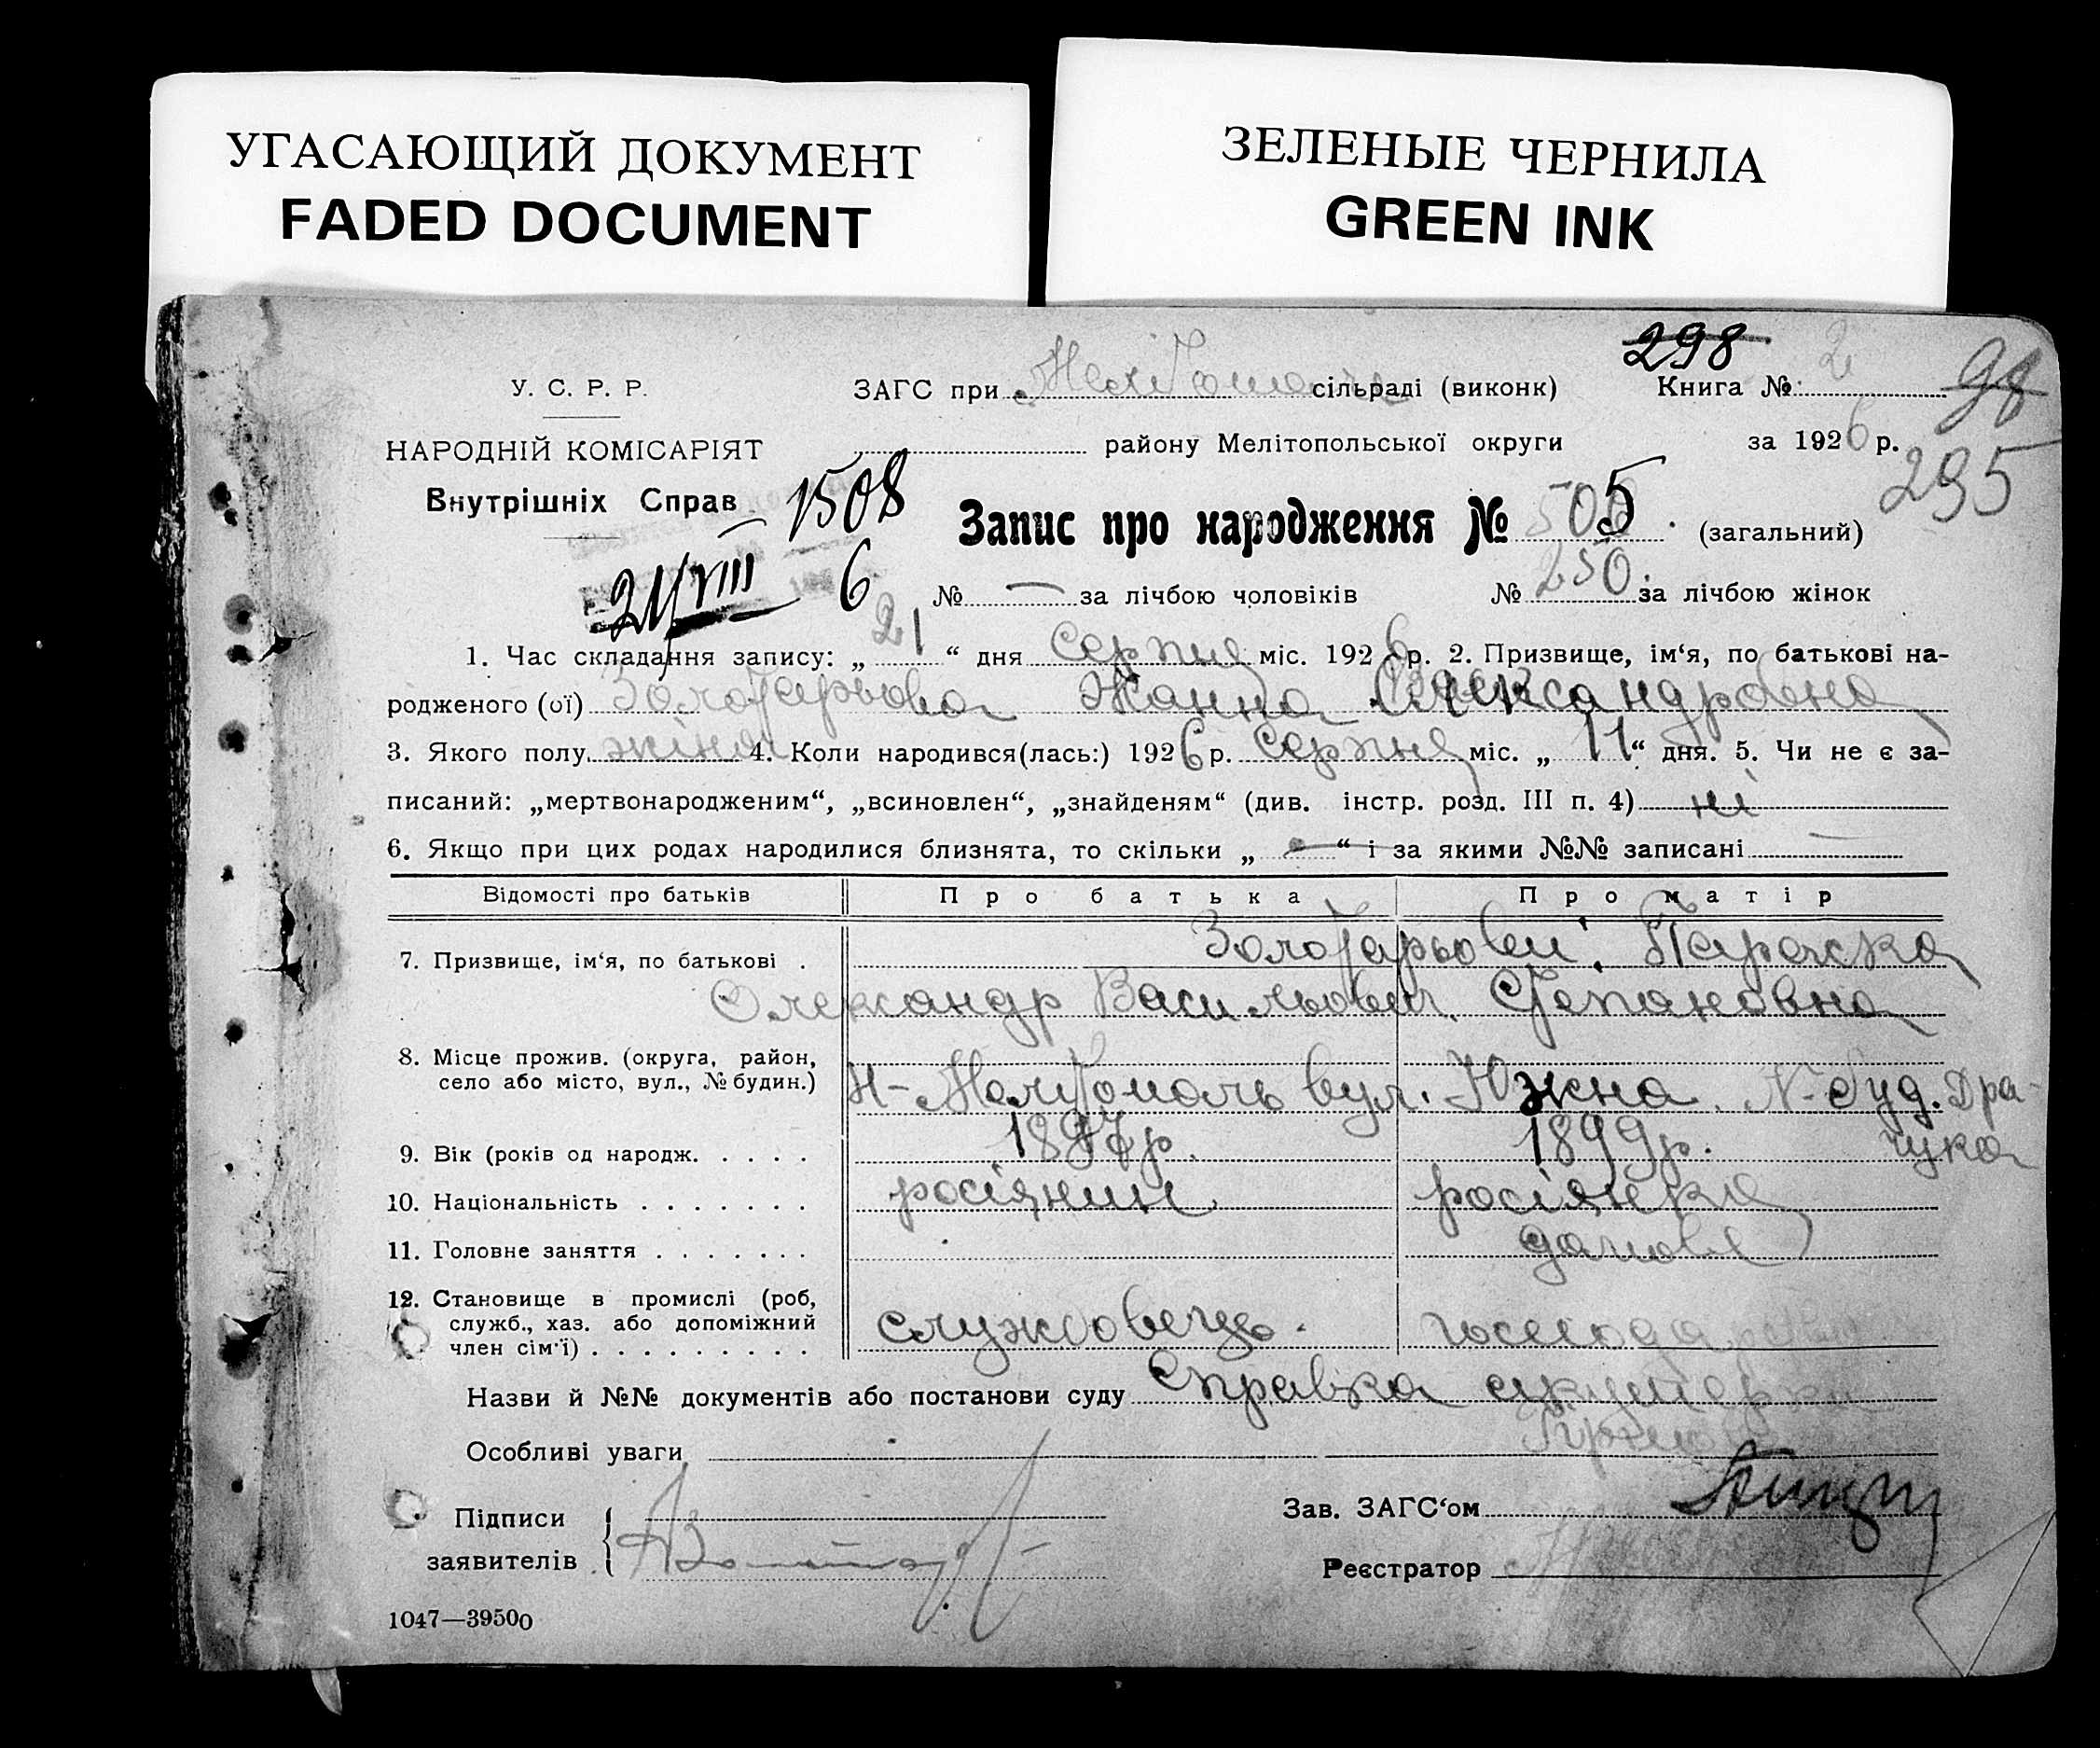 УГАСАЮЩИЙ ДОКУМЕНТ
FADED DOCUMENT
ЗЕЛЕНЫЕ ЧЕРНИЛА
GREEN INK
298
У. С. Р. Р. ЗАГС при сільраді (виконк) Книга № 2 98
НАРОДНІЙ КОМІСАРІЯТ району Мелітопольської округи за 1926 р. 295
Внутрішніх Справ 1508 Запис про народження № 505. (загальний)
21/VIII 6 № — за лічбою чоловіків № 250. за лічбою жінок
1. Час складання запису: „ 21 “ дня Серпня міс. 1926 р. 2. Призвище, ім‘я, по батькові на-
родженого (ої) Золотарьова Жанна Олександровна
3. Якого полу жіноч 4. Коли народився(лась:) 1926 р. Серпня міс. „ 11 “ дня. 5. Чи не є за-
писаний: „мертвонародженим“, „всиновлен“, „знайденям“ (див. інстр. розд. III п. 4) ні
6. Якщо при цих родах народилися близнята, то скільки „ — “ і за якими №№ записані —
Відомості про батьків Про батька Про матір
7. Призвище, ім‘я, по батькові . Золотарьови: Параска
Олександр Васильович. Степановна
8. Місце прожив. (округа, район,
село або місто, вул., № будин.) Н-Мелітополь вул. Южна. N-буд. Дра-
чука
9. Вік (років од народж. . . . . 1897р. 1899р.
10. Національність . . . . . . . росіянин росіянка
11. Головне заняття . . . . . . . домове
12. Становище в промислі (роб,
служб., хаз. або допоміжний
член сім‘ї) . . . . . . . . . службовець. господарство
Назви й №№ документів або постанови суду Справка акушерки
Особливі уваги
Підписи
заявителів
Зав. ЗАГС‘ом
Реєстратор
1047—39500